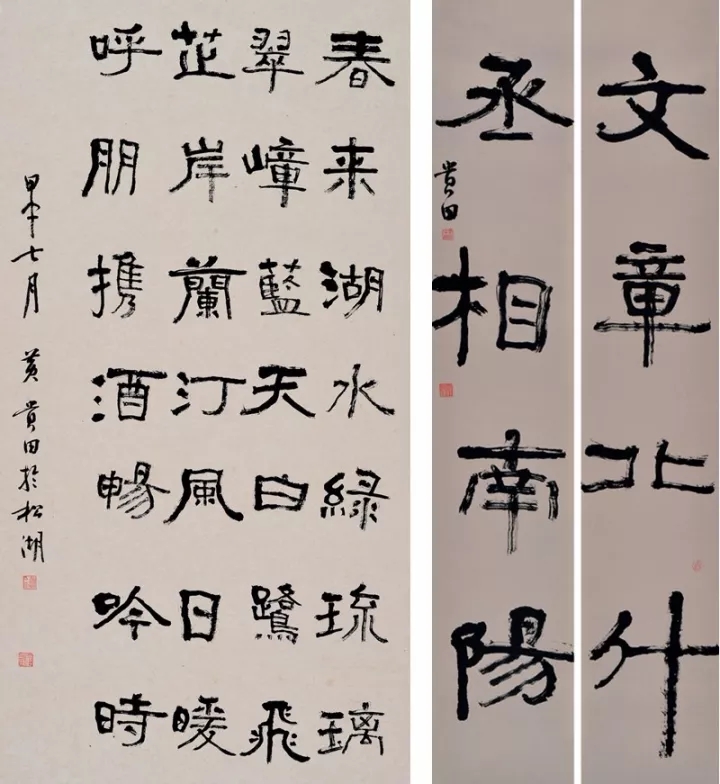 春来湖水綠琉璃
翠嶂藍天白鷺飛
芷岸蘭汀風日暖
呼朋携酒暢吟時
甲午七月 黄貴田於松湖
文章北什
丞相南陽
貴田